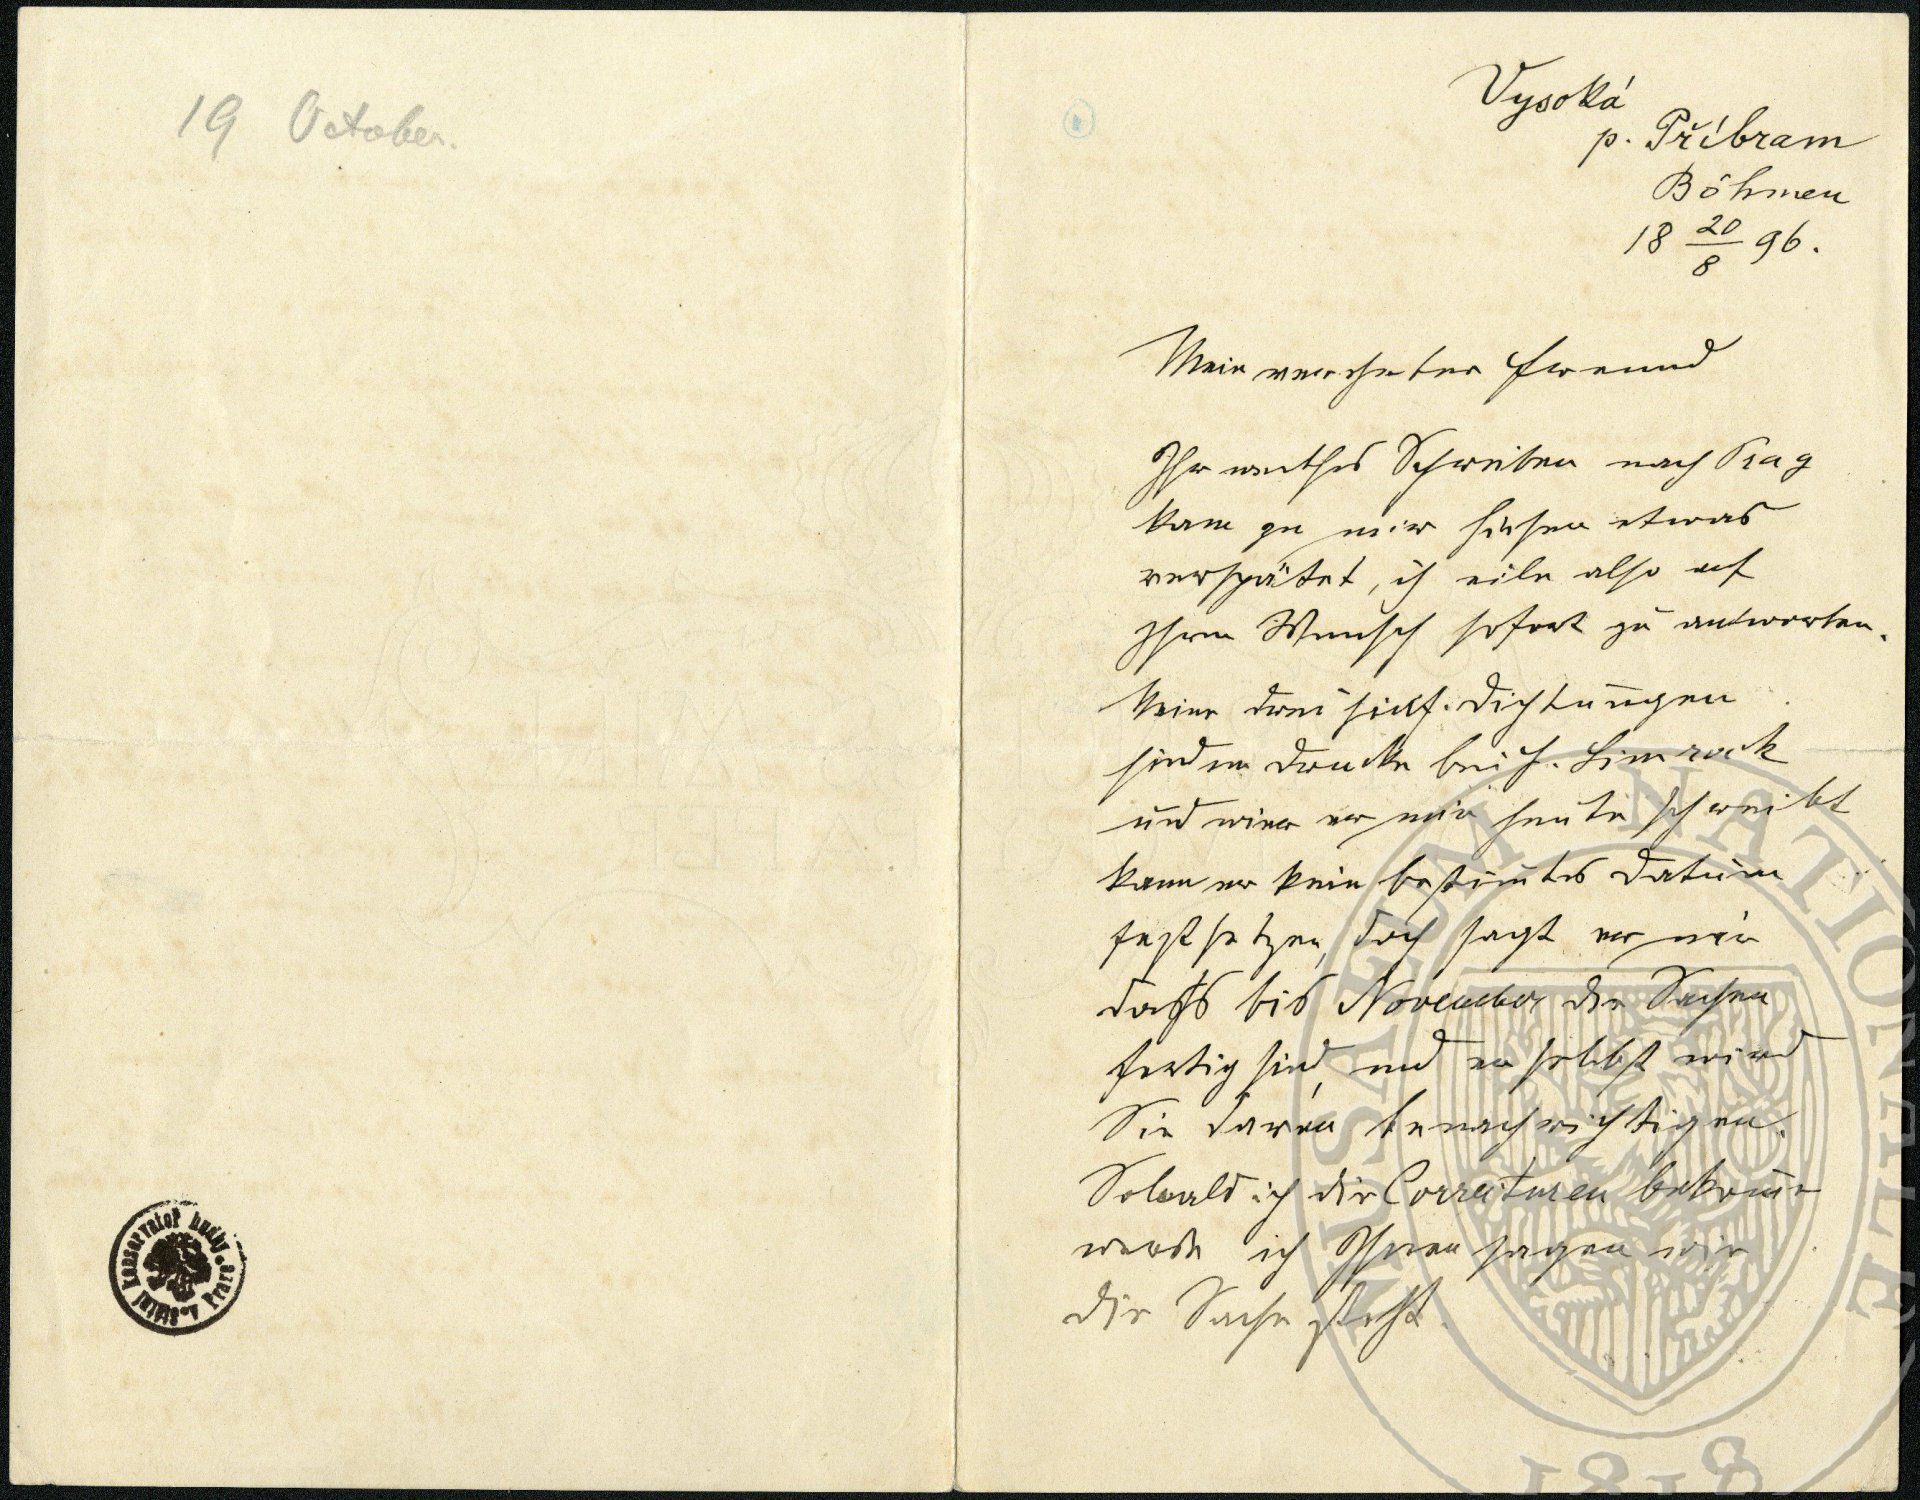 19 October.
Vysoká
p. Příbram
Böhmen
18 20/8 96.
Mein verehrter Freund
Ihr werthes Schreiben nach Prag
kam zu mir hieher etwas
verspätet, ich eile also auf
Ihren Wunsch sofort zu antworten.
Meine drei simf. Dichtungen
sind im Drucke bei H. Simrock
und wie er mir heute schreibt
kann er kein bestim̅tes Datum
festsetzen, doch sagt er mir
dass bis November die Sachen
fertig sind, und er selbst wird
Sie davon benachrichtigen.
Sobald ich die Correcturen bekom̅e
werde ich Ihnen sagen wie
die Sache steht.
konservatoř hudby v Praze
MUSAEUM NATIONALE
1818